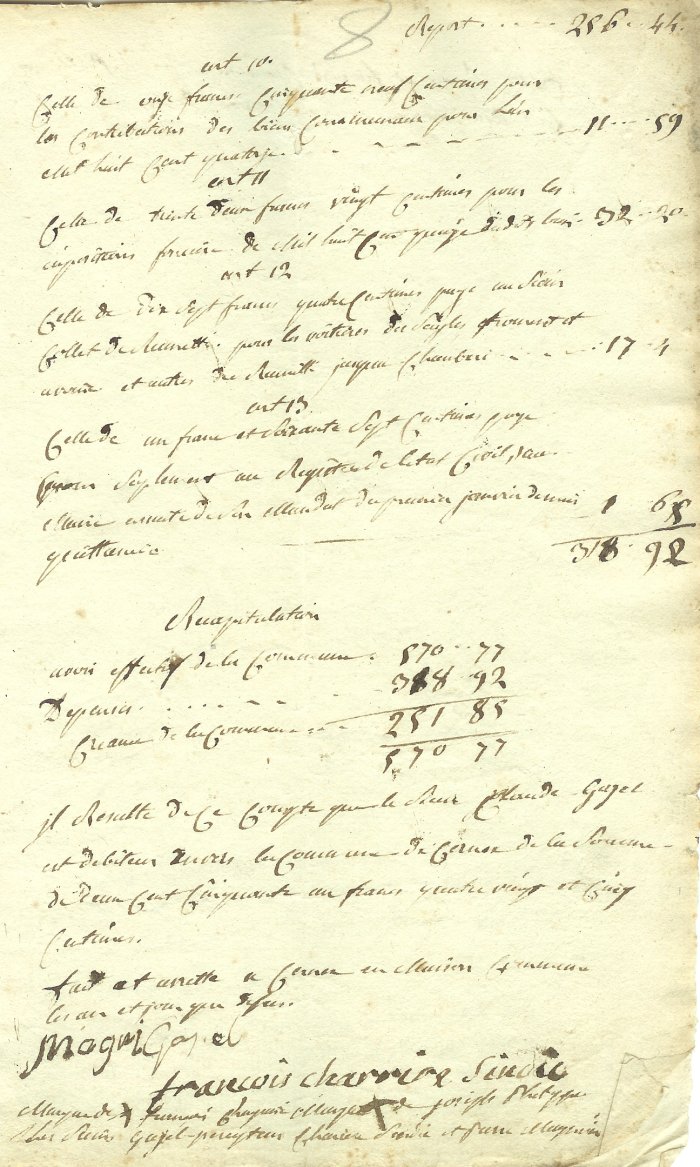 8
Report . . . . . 256 .. 44.
art 10.
Celle de onze francs Cinquante neuf Centimes pour
les Contributions des biens Communaux pour l'an
mil huit Cent quatorze. - - - - - 11 ... 59
art 11
Celle de trente deux francs vingt Centimes pour les
impositions foncière de Mil huit Cent quinze du dits bien 32 .. 20
art 12
Celle de Dix Sept francs quatre Centimes payé au Sieur
Collet de Rumilli pour les voitures du Seigle froment et
avoine et autres de Rumilli jusqua Chamberi - - - - 17 .. 4
art 13
Celle de un franc et Soixante Sept Centimes payé
pour Suplement au Registre de l'etat Civil, au
Maire ensuite de Son Mandat du premier janvier dernier
quittancé 1 65
318 .. 92
Recapitulation
avoir effectif de la Commune . 570 .. 77
Depenses . . . . . - - 318 92
Creance de la Commune . . - 251 85
570 77
jl Resulte de Ce Compte que le Sieur Claude Gazel
est debiteur Envers la Commune de Cernex de la Somme
de Deux Cent Cinquante un francs quatre vingt et Cinq
Centimes.
fait et arretté a Cernex en Maison Commune
les an et jour que dessus.
Magni Gazel
francois charrire Sindic
Marque de X francois Marque X de joseph Philippe
Les Sieurs Gazel percepteur Charriere Sindic et Pierre Magnin